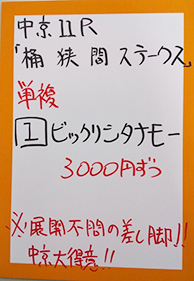 中京11R
「桶狭間ステークス」
単複
1 ビックリシタナモー
3000円ずつ
※展開不問の差し脚!!
中京大得意!!